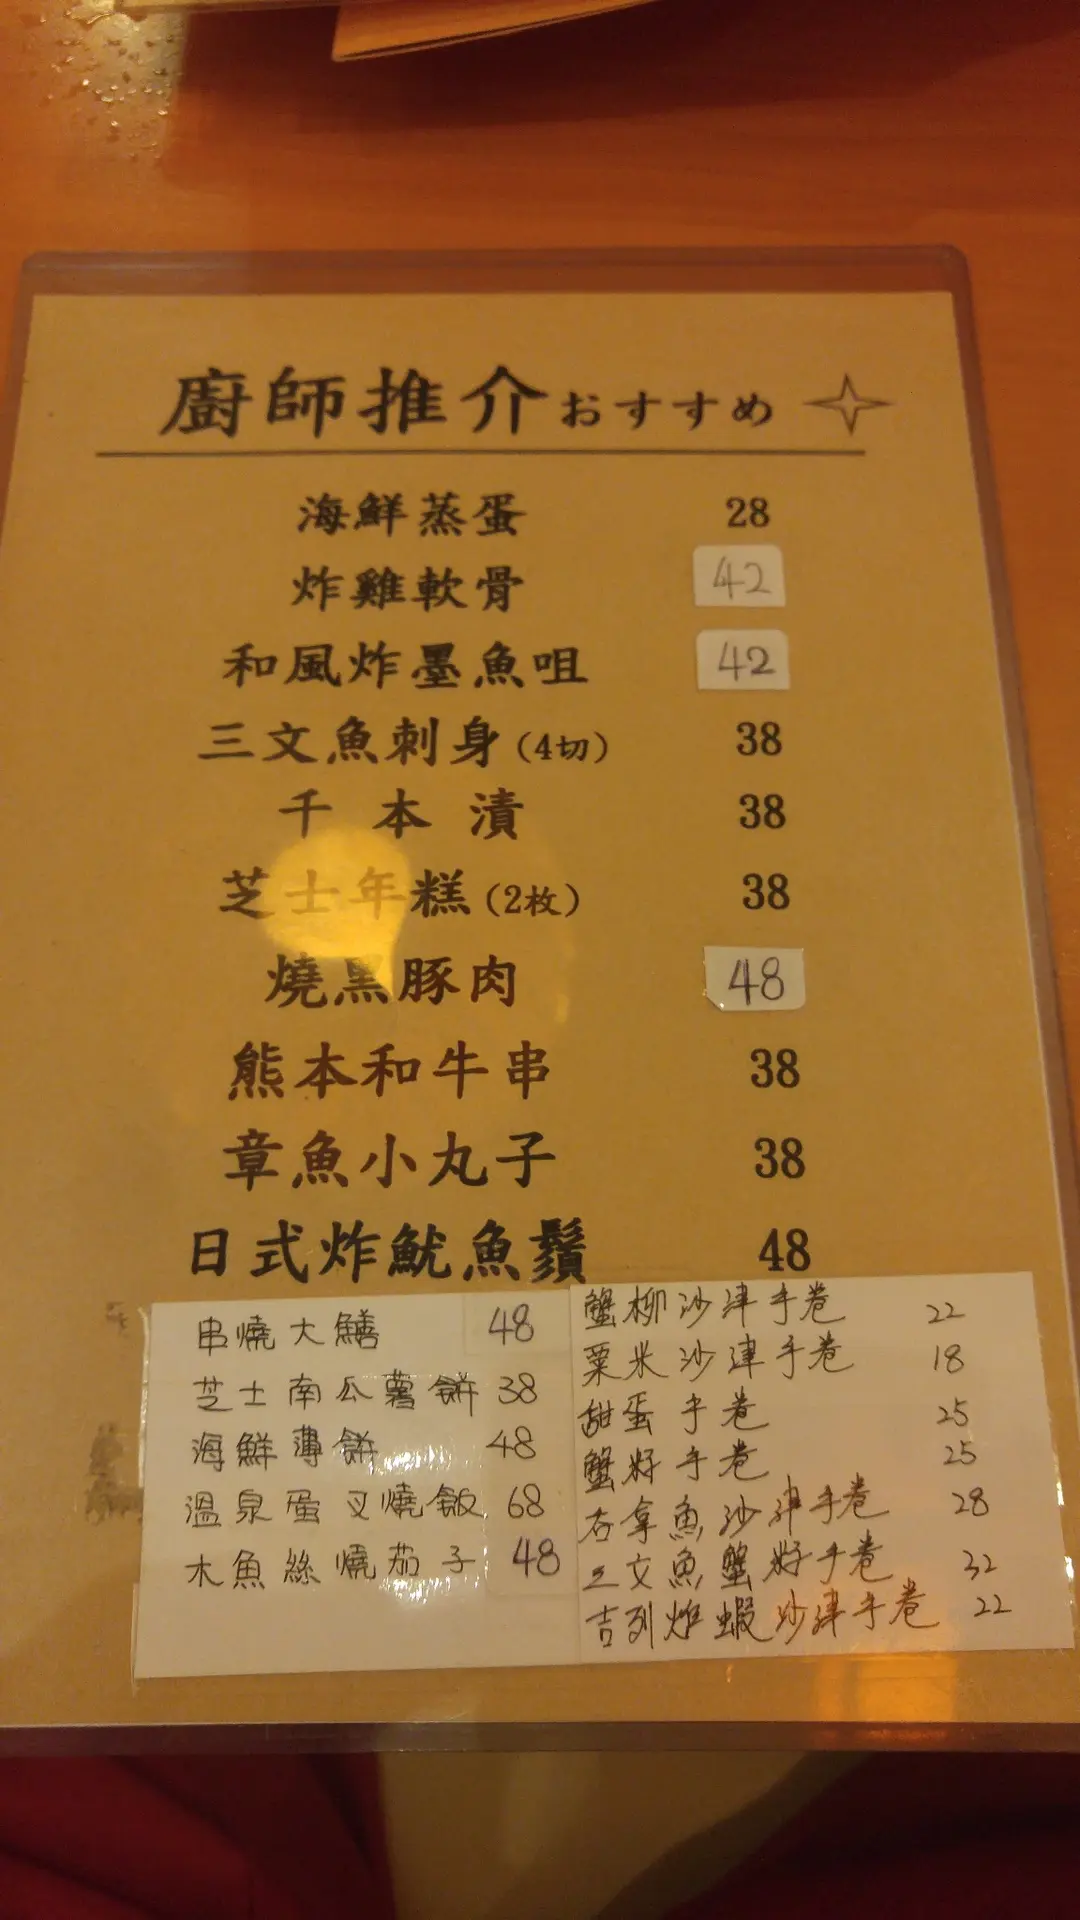 廚師推介おすすめ
海鮮蒸蛋 28
炸雞軟骨 42
和風炸墨魚咀 42
三文魚刺身(4切) 38
千本漬 38
芝士年糕(2枚) 38
燒黑豚肉 48
熊本和牛串 38
章魚小丸子 38
日式炸魷魚鬚 48
串燒大鱔 48
芝士南瓜薯餅 38
海鮮薄餅 48
溫泉蛋叉燒飯 68
木魚絲燒茄子 48
蟹柳沙津手卷 22
粟米沙津手卷 18
甜蛋手卷 25
蟹籽手卷 25
吞拿魚沙津手卷 28
三文魚蟹籽手卷 32
吉列炸蝦沙津手卷 22